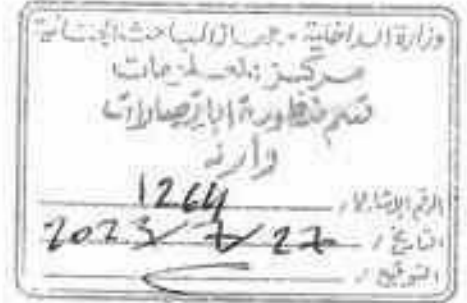 وزارة الداخلية - جهاز المباحث الجنائية
مركز المعلومات
قسم منظومة الاتصالات
وارد
الرقم الإشاري / 1264
التاريخ / 27 / 7 / 2023
التوقيع /